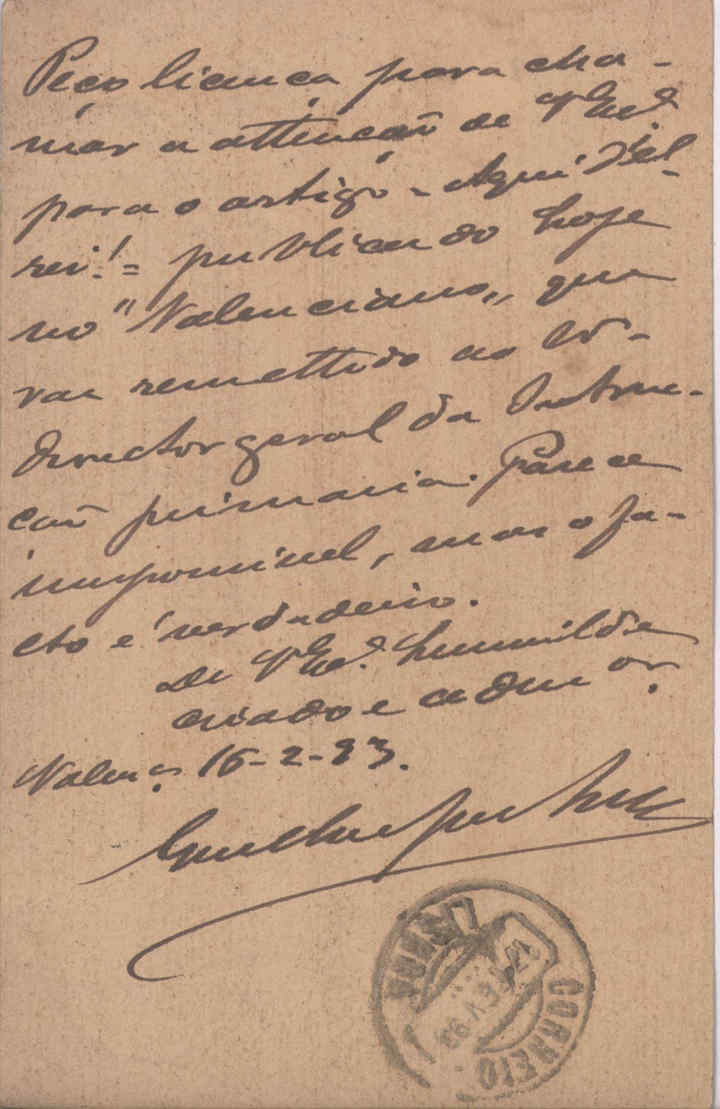 Peço licença para cha-
mar a attenção de V. Exª.
para o artigo - Aqui d'el-
rei! = publicando hoje
no "Valenciano„ que
vae remettido ao
director geral da Instruc-
ção primaria. Parece
impossivel, mas o fa-
cto é verdadeiro.
De V. Exª. humilde
criado e admor.
Valenç. 16-2-93.
LISBOA
FEV 93
CORREIO